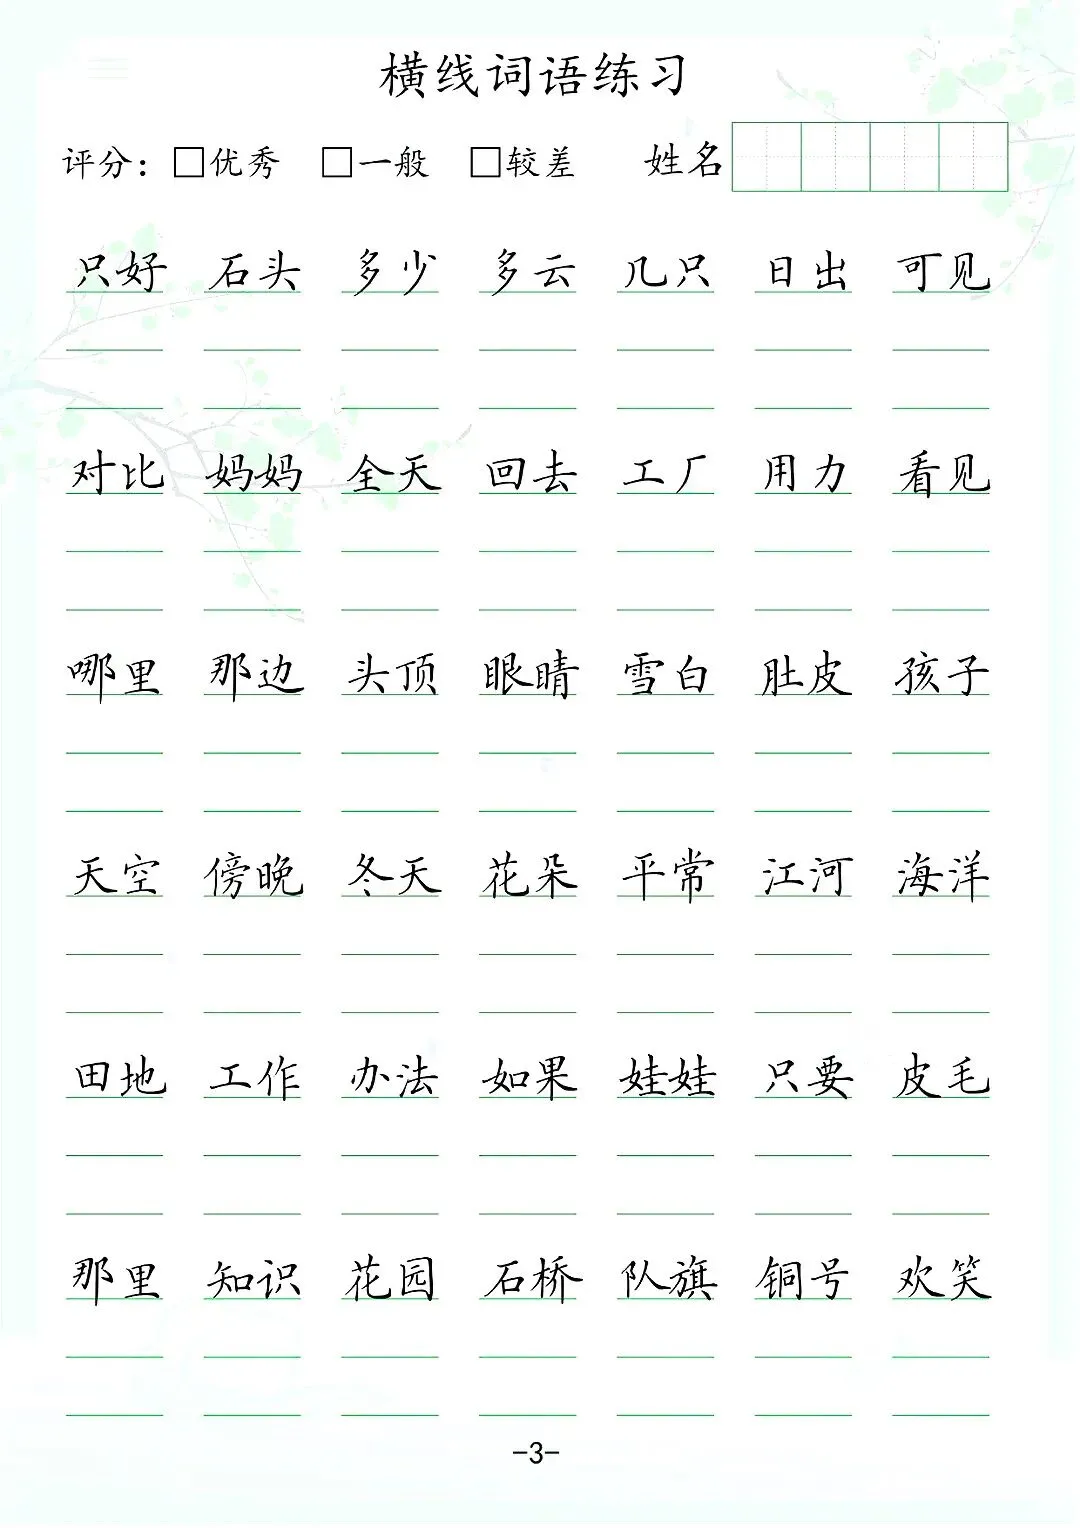 横线词语练习
评分：□优秀 □一般 □较差 姓名
只好 石头 多少 多云 几只 日出 可见
对比 妈妈 全天 回去 工厂 用力 看见
哪里 那边 头顶 眼睛 雪白 肚皮 孩子
天空 傍晚 冬天 花朵 平常 江河 海洋
田地 工作 办法 如果 娃娃 只要 皮毛
那里 知识 花园 石桥 队旗 铜号 欢笑
-3-